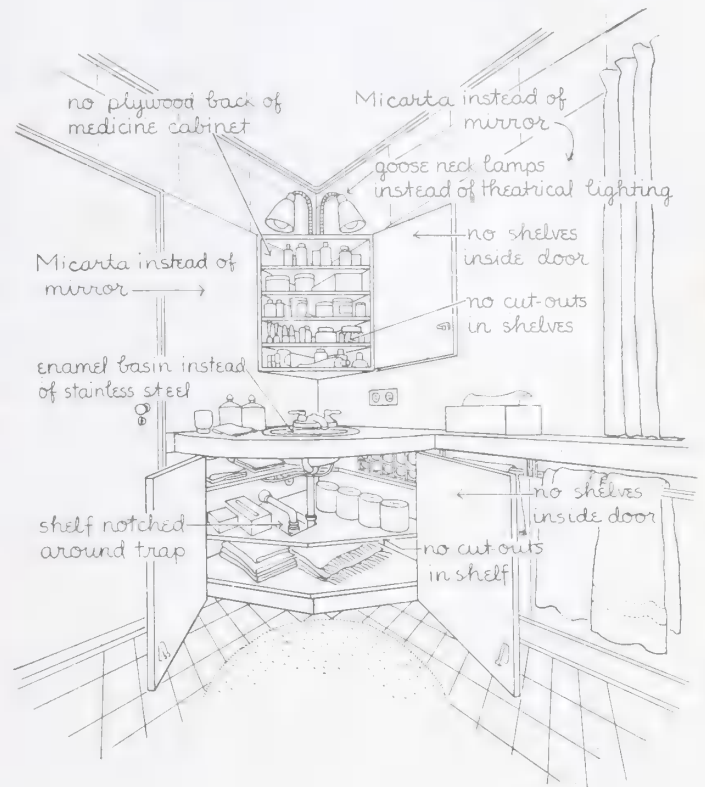 no plywood back of
medicine cabinet
Micarta instead of
mirror
goose neck lamps
instead of theatrical lighting
no shelves
inside door
Micarta instead of
mirror
no cut-outs
in shelves
enamel basin instead
of stainless steel
no shelves
inside door
shelf notched
around trap
no cut-outs
in shelf